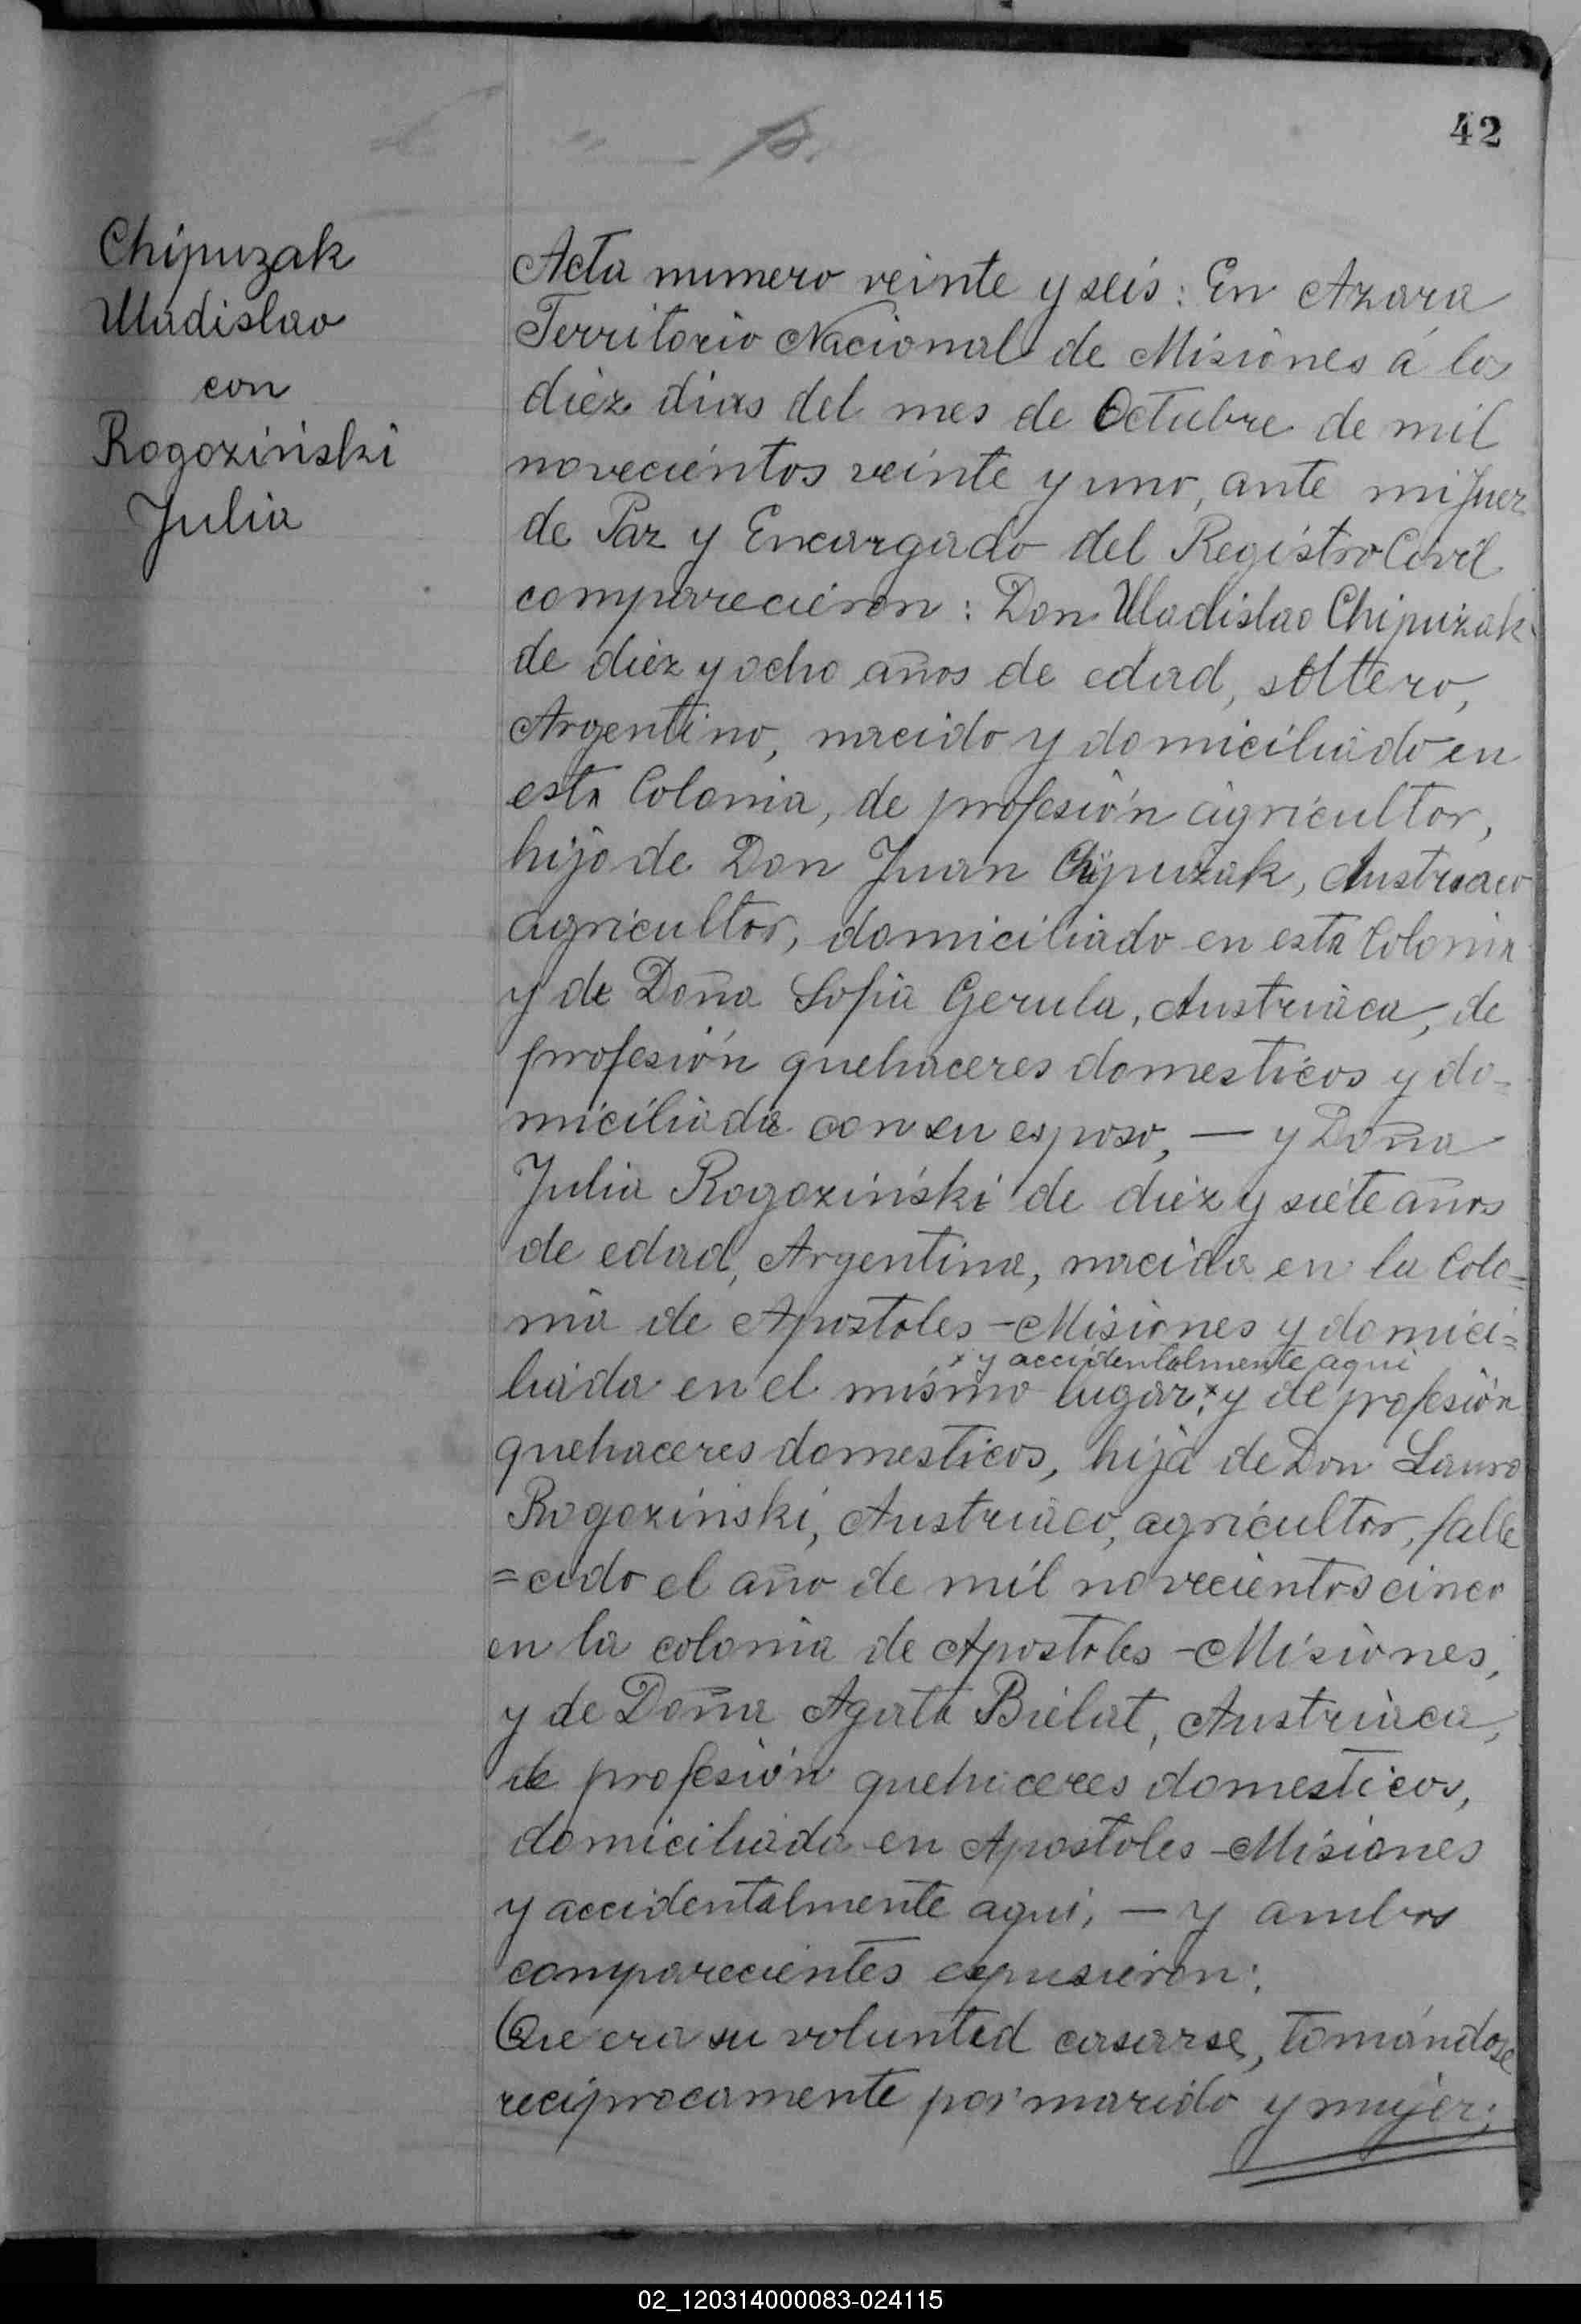 42
Chipuzak
Uladislao
con
Rogoziński
Julia
Acta numero veinte y seis: En Azara
Territorio Nacional de Misiones á los
diez dias del mes de Octubre de mil
novecientos veinte y uno, ante mi Juez
de Paz y Encargado del Registro Civil
comparecieron: Don Uladislao Chipuzak
de diez y ocho años de edad, soltero,
Argentino, nacido y domiciliado en
esta Colonia, de profesión agricultor,
hijo de Don Juan Chipuzak, Austriaco
agricultor, domiciliado en esta Colonia
y de Doña Sofia Gerula, Austriaca, de
profesión quehaceres domesticos y do=
miciliada con su esposo, — y Doña
Julia Rogoziński de diez y siete años
de edad, Argentina, nacida en la Colo=
nia de Apostoles - Misiones y domici=
x y accidentalmente aqui
liada en el mismo lugar,x y de profesión
quehaceres domesticos, hija de Don Lauro
Rogoziński, Austriaco, agricultor, falle
=cido el año de mil novecientos cinco
en la colonia de Apostoles - Misiones,
y de Doña Agata Bielat, Austriaca,
de profesión quehaceres domesticos,
domiciliada en Apostoles - Misiones
y accidentalmente aqui, — y ambos
comparecientes expusieron:
Que era su voluntad casarse, tomándose
reciprocamente por marido y mujer;
02_120314000083-024115